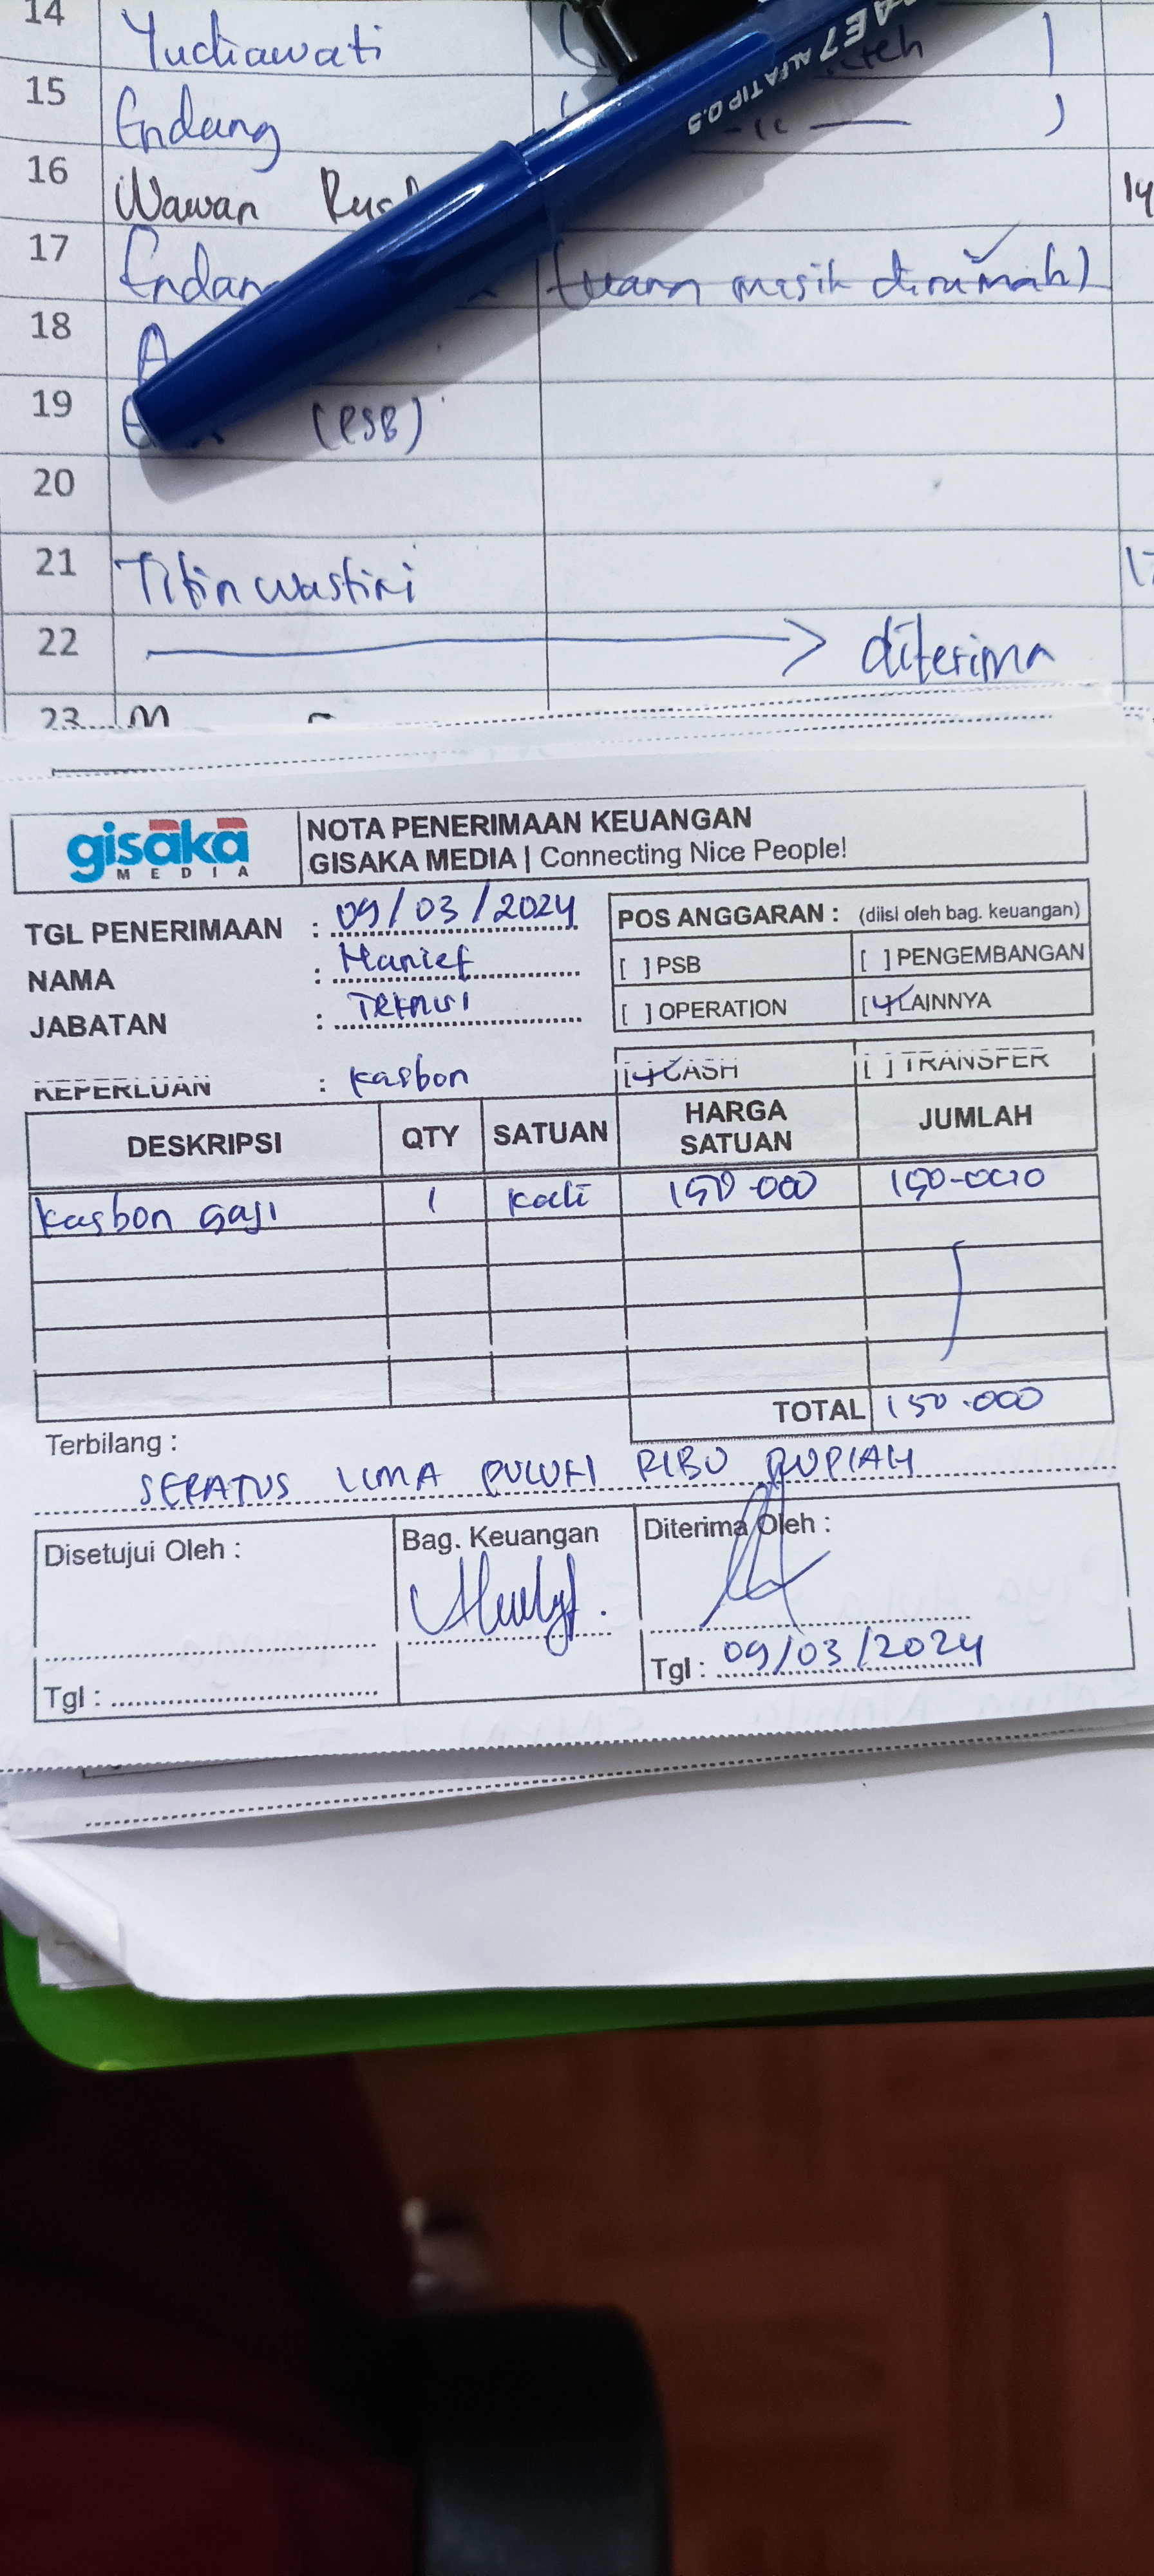 14 Yudiawati ( teh )
15 Endang ( -(( — )
16 Wawan
17 Endan (uang masih dirumah)
18 A
19 (PSB)
20
21 Titin wastini
22 → diterima
23
AE7 ALFATIP 0.5
gisaka MEDIA
NOTA PENERIMAAN KEUANGAN
GISAKA MEDIA | Connecting Nice People!
TGL PENERIMAAN : 09/03/2024
NAMA : Hanief
JABATAN : Teknisi
POS ANGGARAN : (diisi oleh bag. keuangan)
[ ] PSB [ ] PENGEMBANGAN
[ ] OPERATION [✓] LAINNYA
KEPERLUAN : kasbon [✓] CASH [ ] TRANSFER
DESKRIPSI QTY SATUAN HARGA SATUAN JUMLAH
kasbon gaji 1 kali 150.000 150.000
TOTAL 150.000
Terbilang :
SERATUS LIMA PULUH RIBU RUPIAH
Disetujui Oleh : Bag. Keuangan Diterima Oleh :
Tgl : Tgl : 09/03/2024